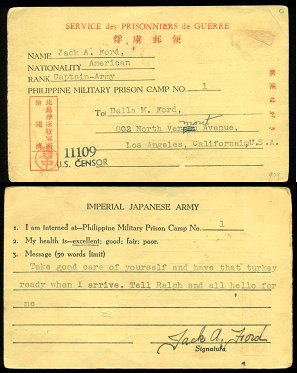 SERVICE des PRISONNIERS de GUERRE
俘虜郵便
NAME Jack A. Ford,
NATIONALITY American
RANK Captain-Army
PHILIPPINE MILITARY PRISON CAMP NO. 1
To: Dalla M. Ford,
mont
802 North Avenue,
Los Angeles, California, U.S.A.
比島俘虜収容所
11109
U.S. CENSOR
IMPERIAL JAPANESE ARMY
1. I am interned at—Philippine Military Prison Camp No. 1
2. My health is—excellent; good; fair; poor.
3. Message (50 words limit)
Take good care of yourself and have that turkey
ready when I arrive. Tell Ralph and all hello for
me
Jack A. Ford
Signature